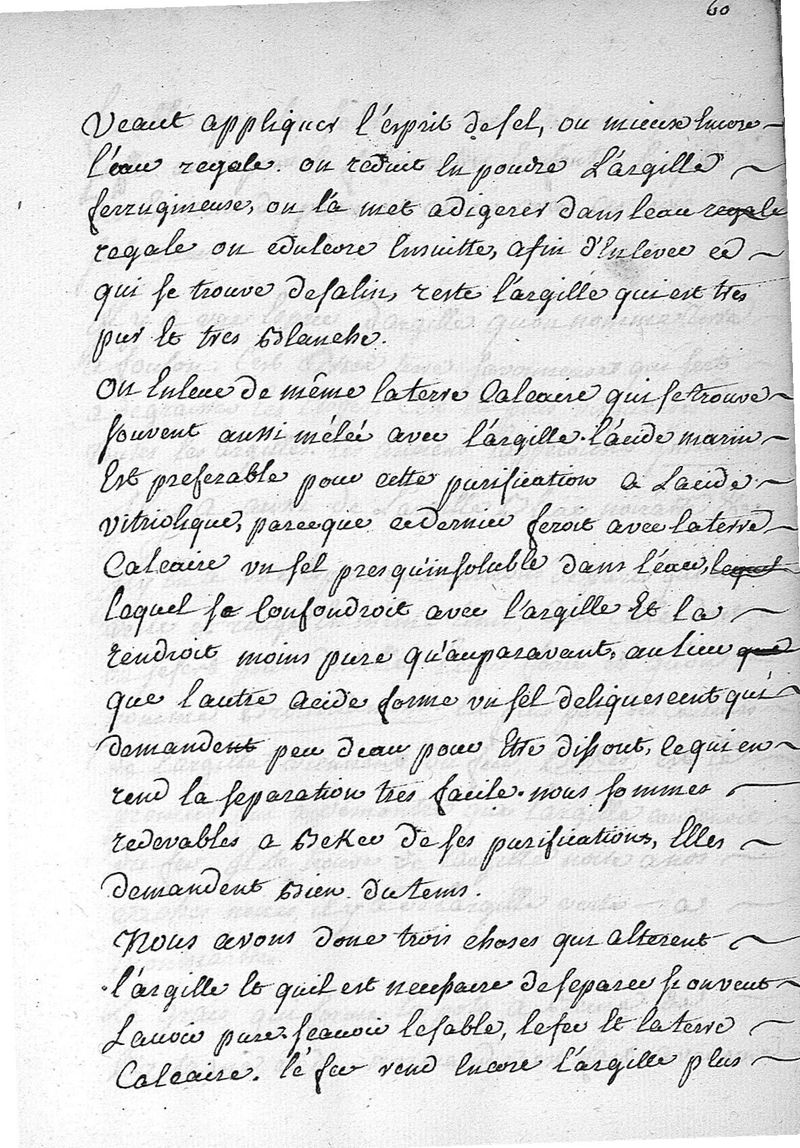 60
veaut appliquer l'esprit de sel, ou mieux Encore
l'eau regale. on reduit En poudre L'argille
ferrugineuse, on l'a met a digerer dans leau regale
regale on edulcore Ensuitte, afin d'Enlever ce
qui se trouve de salin, reste l'argille qui est tres
pur Et tres Blanche.
On Enleve de même la terre Calcaire qui se trouve
souvent aussi mêlée avec l'argille. l'acide marin
Est preferable pour cette purification a Lacide
vitriolique, parceque ce dernier feroit avec la terre
Calcaire un sel presqu'insoluble dans l'eau,
lequel se Confondroit avec l'argille Et la
rendroit moins pure qu'auparavant, au lieu que
que l'autre acide forme un sel deliquescent qui
demandent peu deau pour Etre dissout, ce qui en
rend la separation tres facile. nous sommes
redevables a Beker de ses purifications, Elles
demandent Bien du tems.
Nous avons donc trois choses qui alterent
l'argille Et quil est necessaire de separer si on veut
Lavoir pure. scavoir le sable, le fer Et la terre
Calcaire. le fer rend Encore l'argille plus